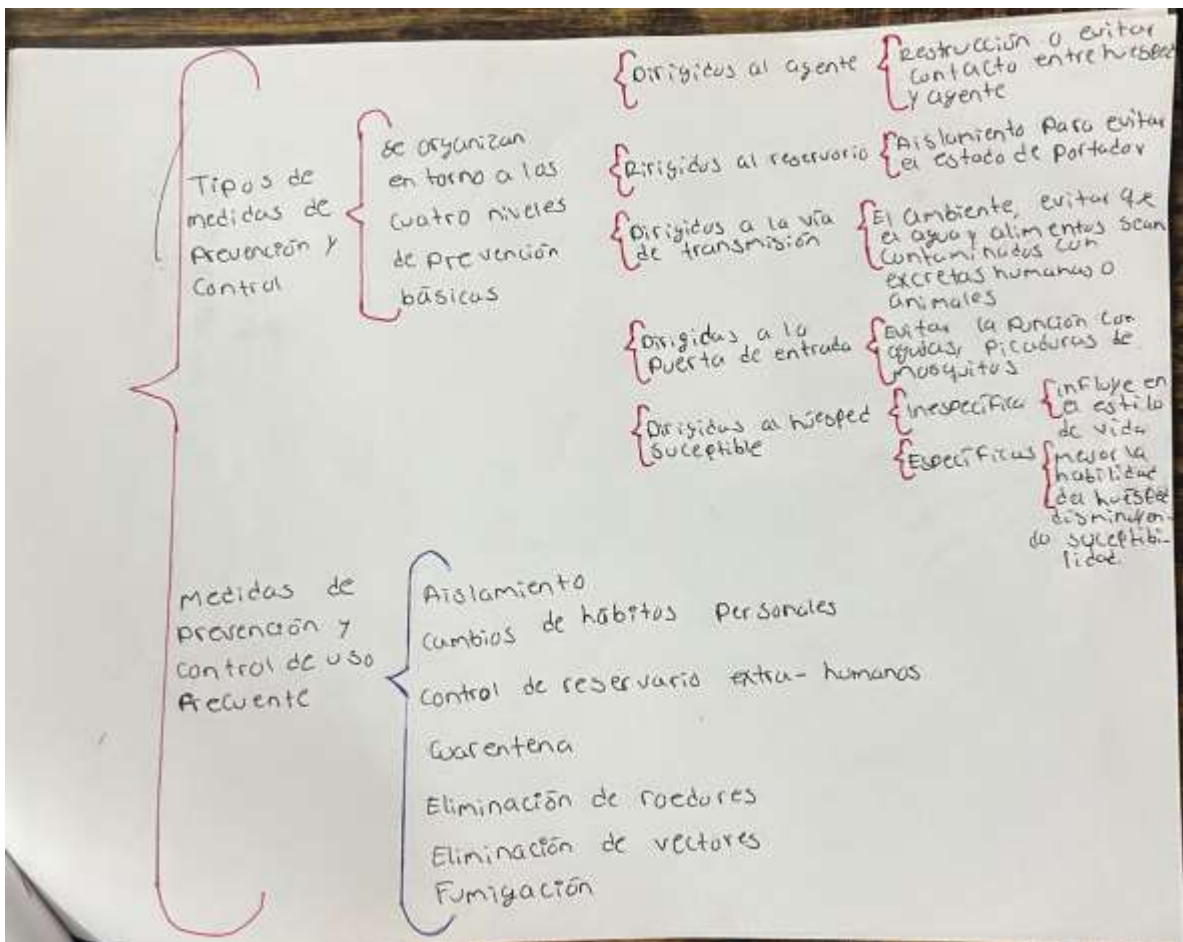 Tipos de
medidas de
Prevención y
Control
se organizan
en torno a los
cuatro niveles
de prevención
básicas
Dirigidas al agente
Restrucción o evitar
contacto entre huesped
y agente
Dirigidas al reservorio
Aislamiento para evitar
el estado de portador
Dirigidas a la vía
de transmisión
El ambiente, evitar qe
el agua y alimentos sean
contaminados con
excretas humanas o
animales
Dirigidas a la
puerta de entrada
Evitar la punción con
agujas, picaduras de
mosquitos
Dirigidas al huésped
suceptible
Inespecífica
influye en
el estilo
de vida
Específicas
mejor la
habilidad
del huésped
disminuyen-
do suceptibi-
lidad.
Medidas de
prevención y
control de uso
frecuente
Aislamiento
Cambios de hábitos personales
Control de reservario extra-humanos
Cuarentena
Eliminación de roedores
Eliminación de vectores
Fumigación